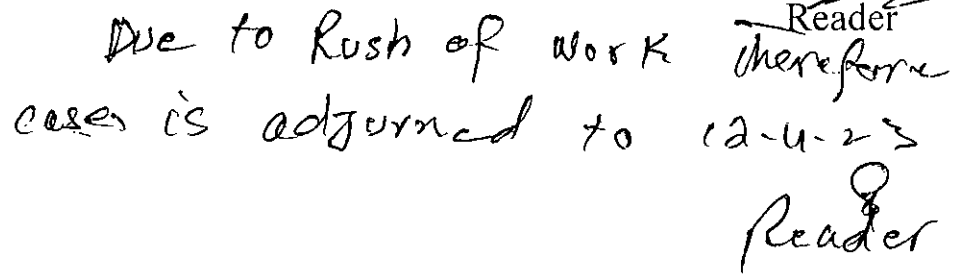 Reader
Due to Rush of work therefore
cases is adjurned to 12-4-23
Reader